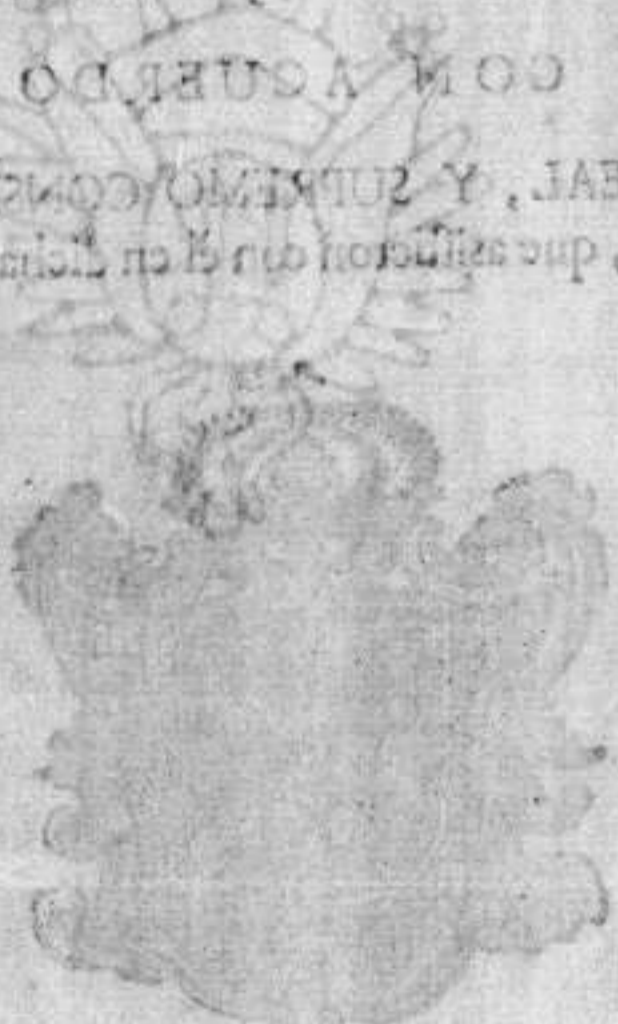 CON ACUERDO
EAL, Y SUPREMO CONS
, que asistieron con él en dicha